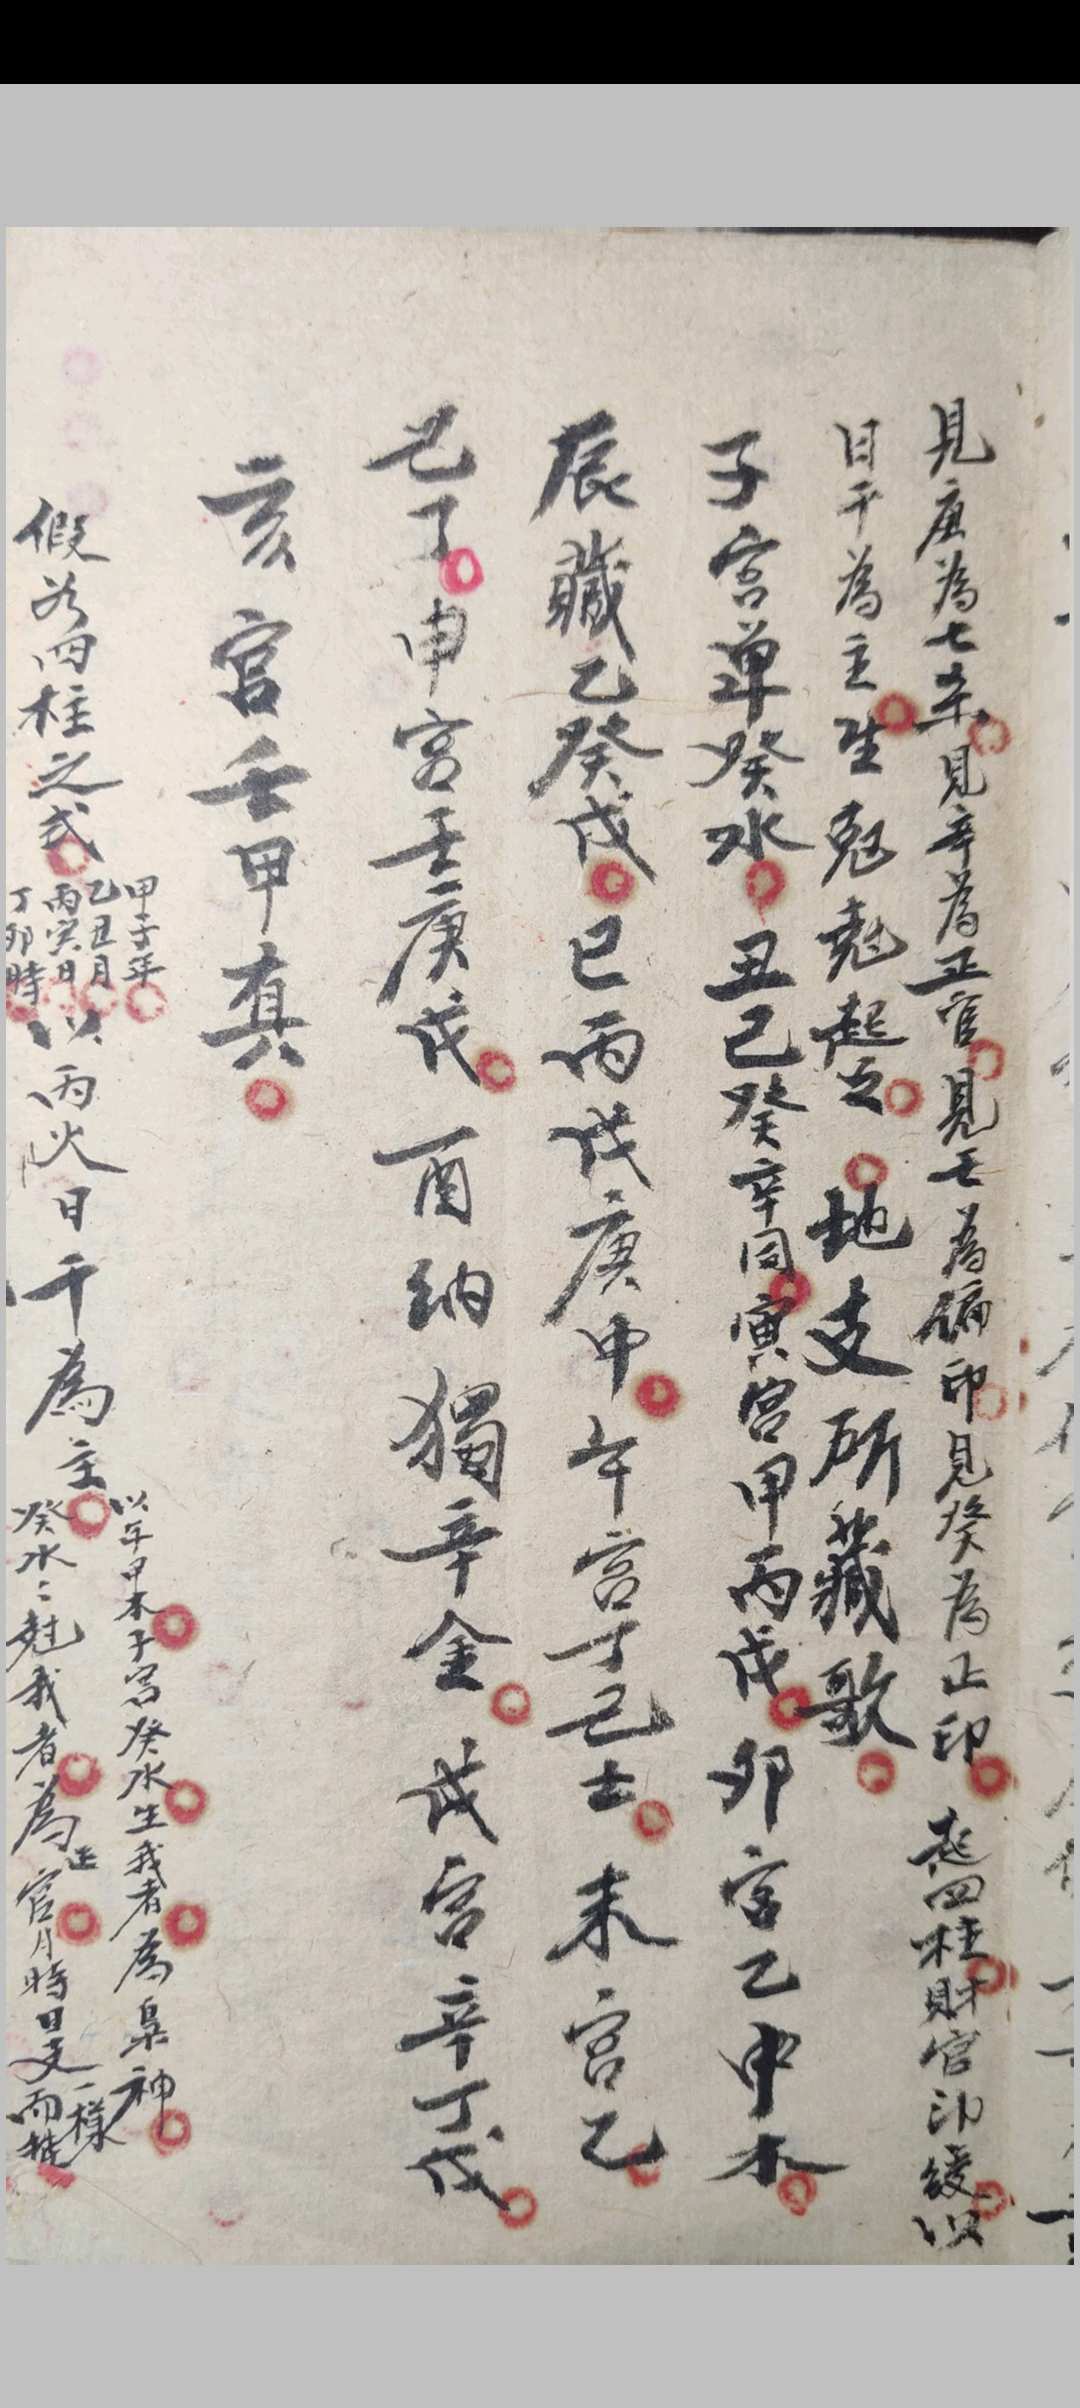 見庚為七杀見辛為正官見壬為偏印見癸為正印 起四柱財官印綬以
日干為主生剋剋起之 地支所藏歌
子宮單癸水 丑己癸辛同寅宮甲丙戊 卯宮乙中木
辰藏乙癸戊 巳丙戊庚中 午宮丁己士 未宮乙
己丁 申宮壬庚戊 酉纳獨辛金 戌宮辛丁戊
亥宮壬甲真
假如四柱之式
甲子年
乙丑月
丙寅日
丁卯時
以丙火日干為主
以年甲木子宮癸水生我者為梟神
癸水〻尅我者為正官月時日支一樣而推